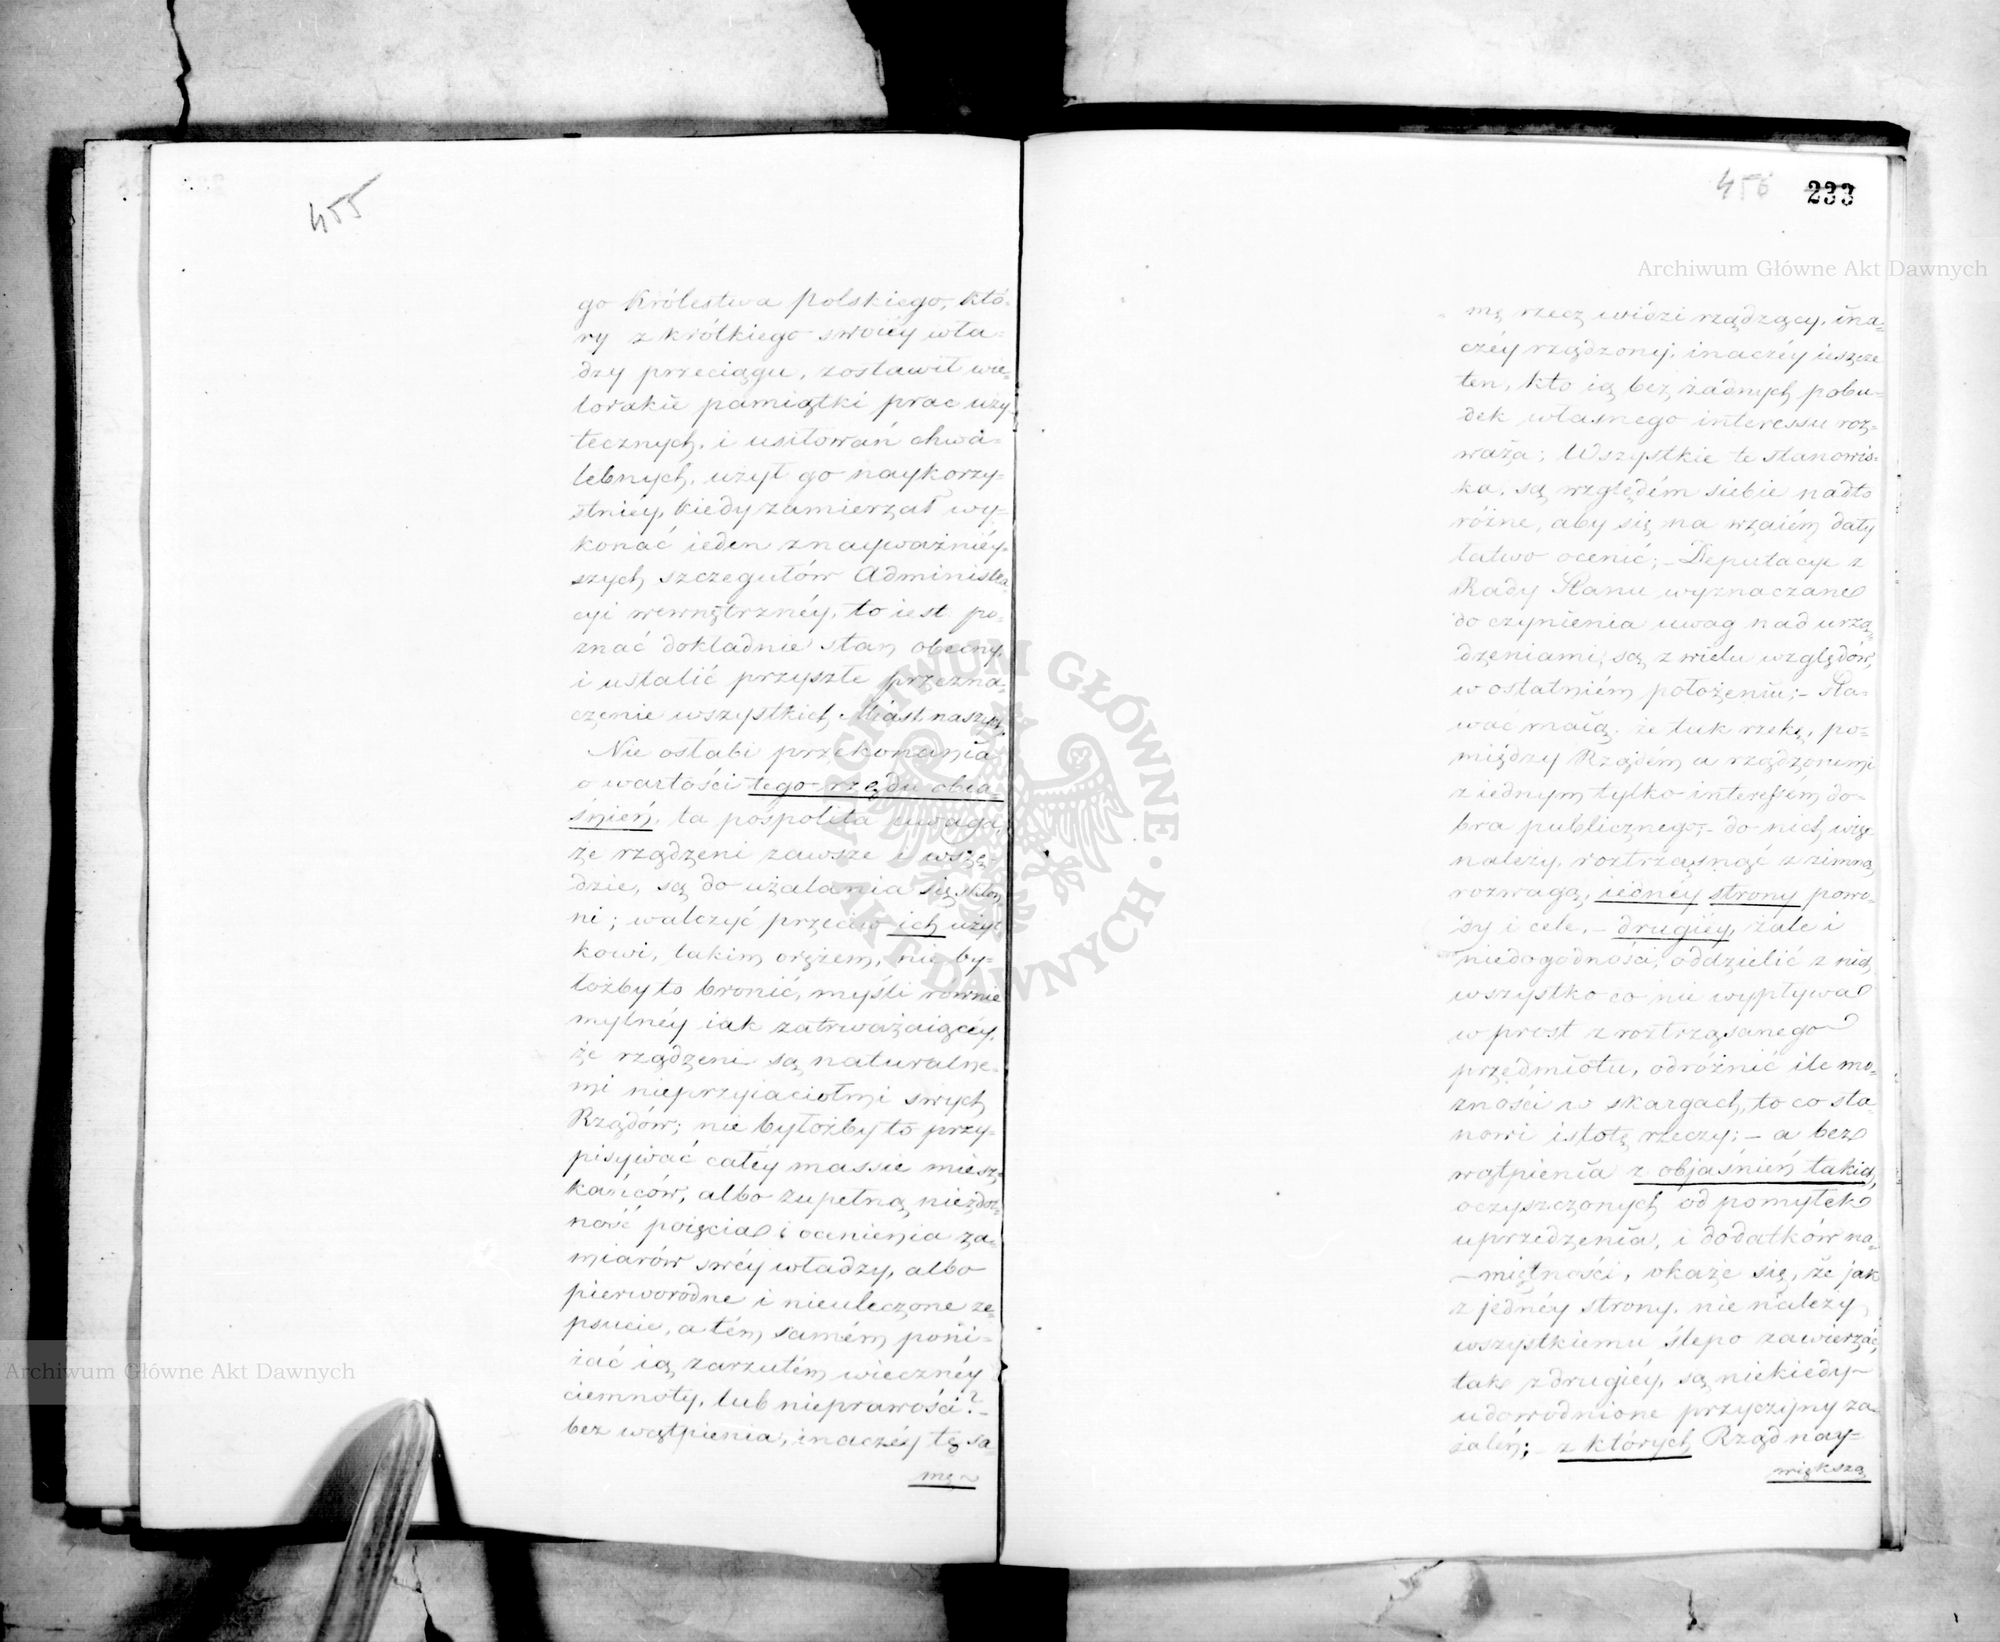 455
go Królestwa polskiego, któ-
ry z krótkiego swoiéy wła-
dzy przeciągu, zostawił wie-
lorakie pamiątki prac uży-
tecznych, i usiłowań chwa-
lebnych, użył go naykorzy-
stniéy, kiedy zamierzał wy-
konać ieden z nayważniéy-
szych szczegułów Administra-
cyi wewnętrznéy, to iest po-
znać dokładnie stan obecny,
i ustalić przyszłe przezna-
czenie wszystkich Miast naszych.
Nie osłabi przekonania
o wartości tego rzędu obia-
śnień, ta pospolita uwaga,
że rządzeni zawsze i wszę-
dzie, są do użalania się skłon-
ni; walczyć przeciw ich uży-
kowi, takim orężem, nie by-
łożby to bronić, myśli równie
mylnéy iak zatrważaiącéy,
że rządzeni są naturalne-
mi nieprzyiaciołmi swych
Rządów; nie byłożby to przy-
pisywać całéy massie miesz-
kańców, albo zupełną niezdol-
ność poięcia i ocenienia za-
miarów swéy władzy, albo
pierworodne i nieuleczone ze-
psucie, a tém samém poni-
żać ią zarzutém wiecznéy
ciemnoty, lub nieprawości? -
bez wątpienia, inaczéy tę sa
mę
456 233
mę rzecz widzi rządzący, ina-
czéy rządzony, inaczéy ieszcze
ten, kto ią bez żadnych pobu-
dek własnego interessu roz-
waża; Wszystkie te stanowis-
ka, są względém siebie nadto
różne, aby się na wzaiém dały
łatwo ocenić; - Deputacye z
Rady Stanu wyznaczane
do czynienia uwag nad urzą-
dzeniami, są z wielu względów,
w ostatniém położeniu; - Sta-
wać maią, że tak rzekę, po-
między Rządém a rządzonemi
z iednym tylko interessém do-
bra publicznego; - do nich więc
należy, roztrząsnąć z zimną
rozwagą, iednéy strony powo-
dy i cele, - drugiéy, żale i
niedogodności, oddzielić z nich
wszystko co nie wypływa
w prost z roztrząsanego
przedmiotu, odróżnić ile mo-
żności w skargach, to co sta-
nowi istotę rzeczy; - a bez
wątpienia z objaśnień takich,
oczyszczonych od pomyłek
uprzedzenia, i dodatków na-
miętności, okaże się, że jak
z jednéy strony, nie należy
wszystkiemu ślepo zawierzać,
tak z drugiéy, są niekiedy
udowodnione przyczyny za-
żaleń; - z których Rząd nay-
większą
Archiwum Główne Akt Dawnych
Archiwum Główne Akt Dawnych
ARCHIWUM GŁÓWNE · AKT DAWNYCH ·